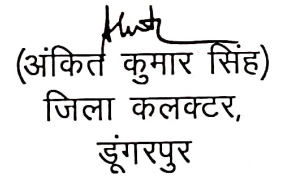 (अंकित कुमार सिंह)
जिला कलक्टर,
डूंगरपुर